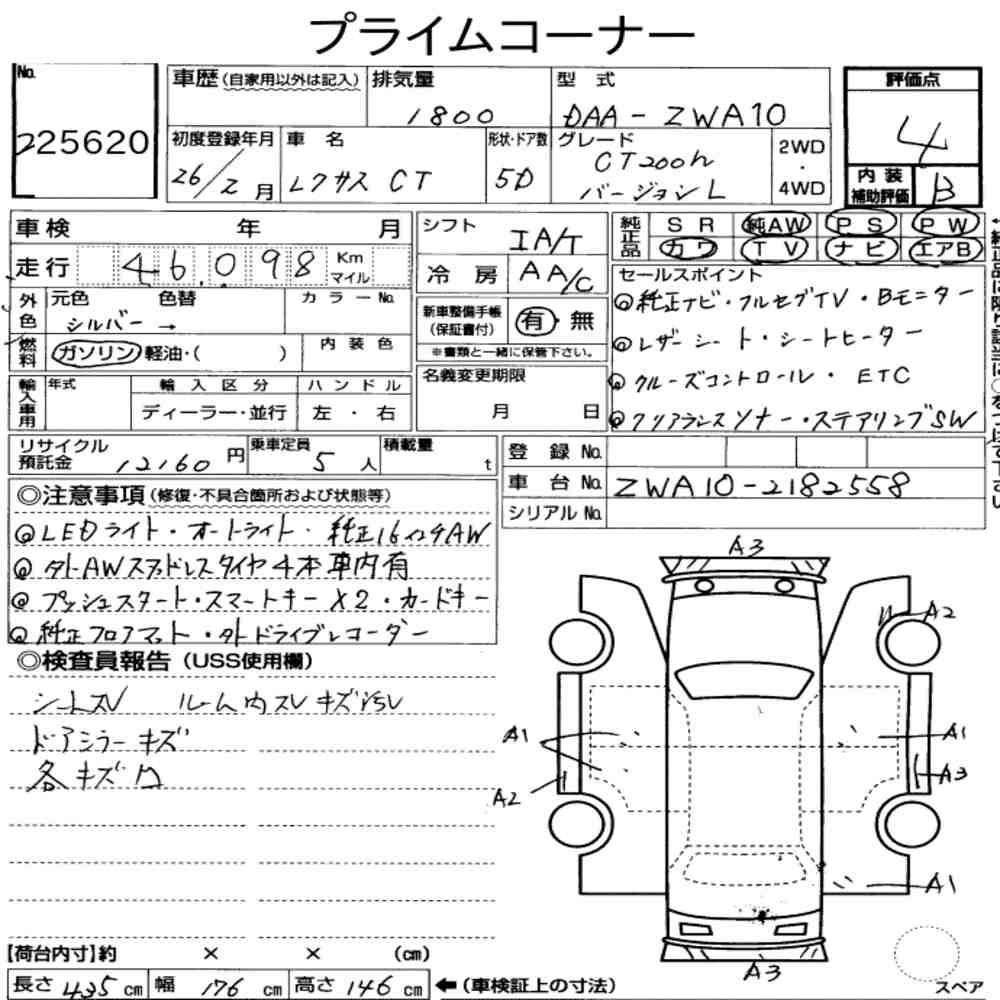 プライムコーナー
No.
225620
車歴(自家用以外は記入)
排気量
1800
型式
DAA-ZWA10
評価点
4
初度登録年月
26/2月
車名
レクサス CT
形状・ドア数
5D
グレード
CT200h
バージョンL
2WD
・
4WD
内装
補助評価
B
車検 年 月
走行 46,098 Km
マイル
外色
元色 色替
シルバー →
カラーNo.
燃料
ガソリン 軽油・( )
内装色
輸入車用
年式
輸入区分
ディーラー・並行
ハンドル
左・右
シフト
IA/T
冷房
AA/C
新車整備手帳
(保証書付)
有・無
※書類と一緒に保管下さい。
名義変更期限
月 日
純正品
SR 純AW PS PW
カワ TV ナビ エアB
セールスポイント
◎純正ナビ・フルセグTV・Bモニター
◎レザーシート・シートヒーター
◎クルーズコントロール・ETC
◎クリアランスソナー・ステアリングSW
リサイクル
預託金
12160円
乗車定員
5人
積載量
t
登録No.
車台No.
ZWA10-2182558
シリアルNo.
◎注意事項(修復・不具合箇所および状態等)
◎LEDライト・オートライト・純正16インチAW
◎外AWスタッドレスタイヤ4本車内有
◎プッシュスタート・スマートキーX2・カードキー
◎純正フロアマット・外ドライブレコーダー
◎検査員報告(USS使用欄)
シートスレ ルーム内スレキズ汚レ
ドアミラーキズ
各キズ凹
A3
A2
A1
A1
A3
A2
A1
A3
【荷台内寸】約 × × (cm)
長さ 435 cm 幅 176 cm 高さ 146 cm
←(車検証上の寸法)
スペア